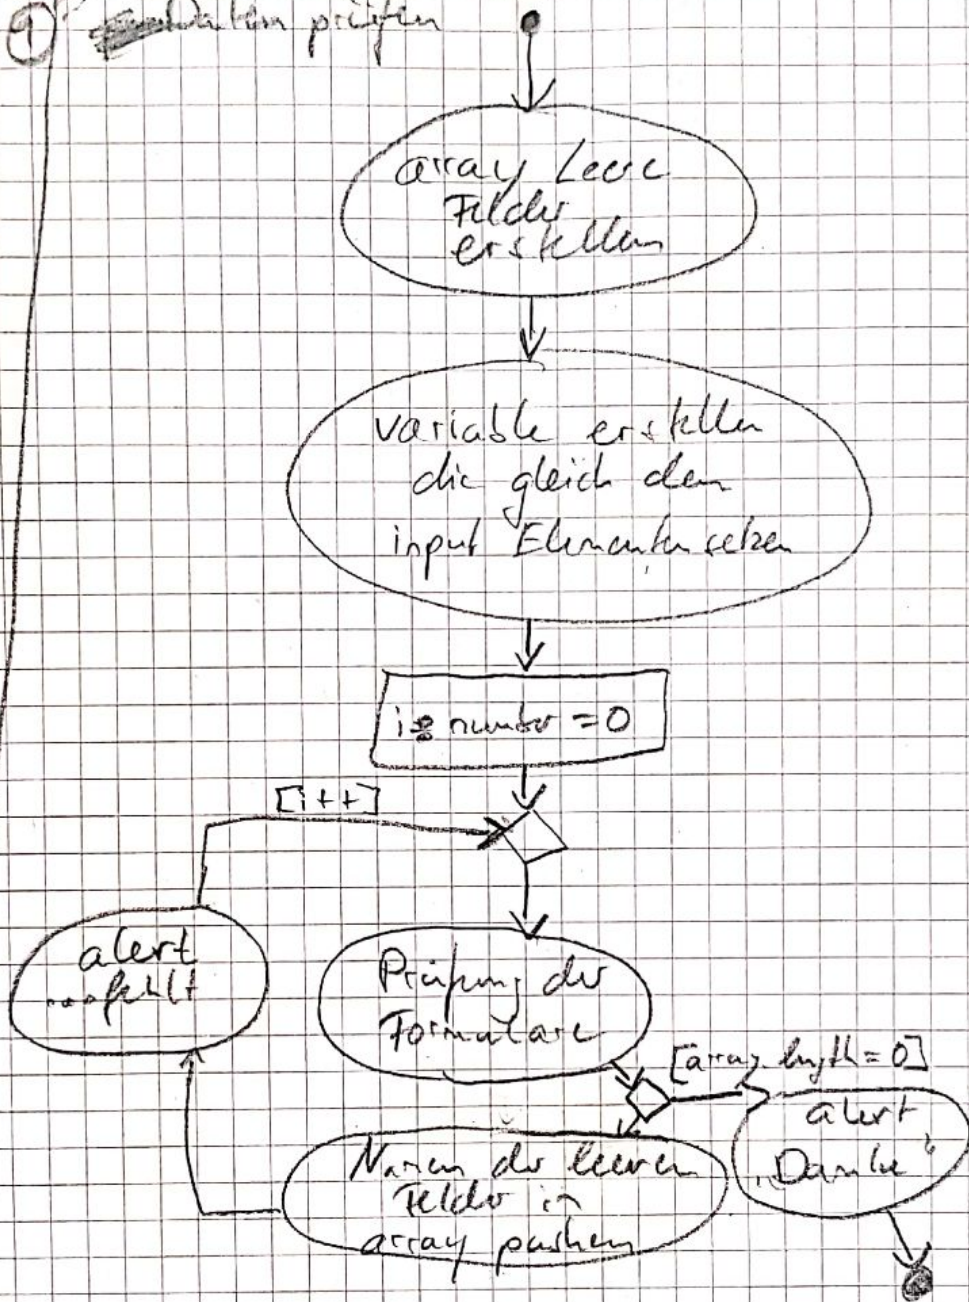 ① Daten prüfen
array Leere
Felder
erstellen
variable erstellen
die gleich den
input Elementen setzen
i: number = 0
[i++]
alert
...fehlt
Prüfung der
Formulare
[array.length = 0]
alert
„Danke“
Namen der leeren
Felder in
array pushen